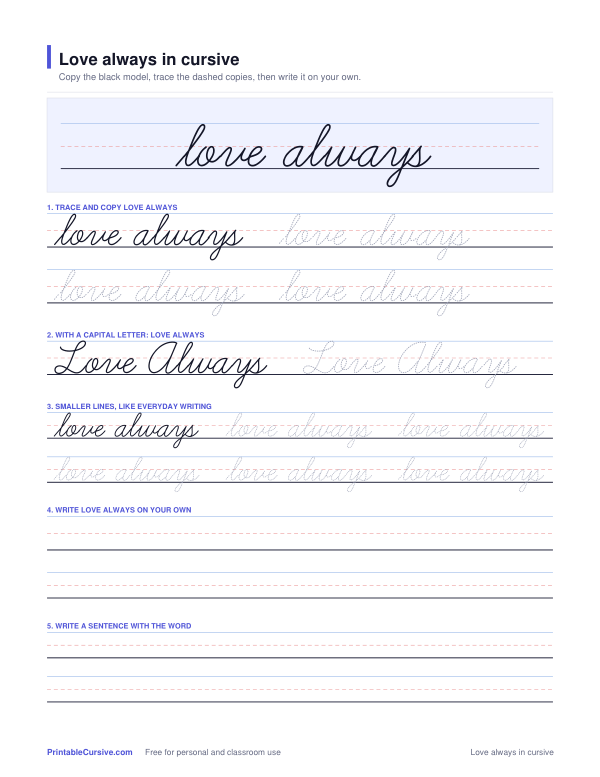 Love always in cursive
Copy the black model, trace the dashed copies, then write it on your own.
love always
1. TRACE AND COPY LOVE ALWAYS
love always love always
love always love always
2. WITH A CAPITAL LETTER: LOVE ALWAYS
Love Always Love Always
3. SMALLER LINES, LIKE EVERYDAY WRITING
love always love always love always
love always love always love always
4. WRITE LOVE ALWAYS ON YOUR OWN
5. WRITE A SENTENCE WITH THE WORD
PrintableCursive.com Free for personal and classroom use Love always in cursive